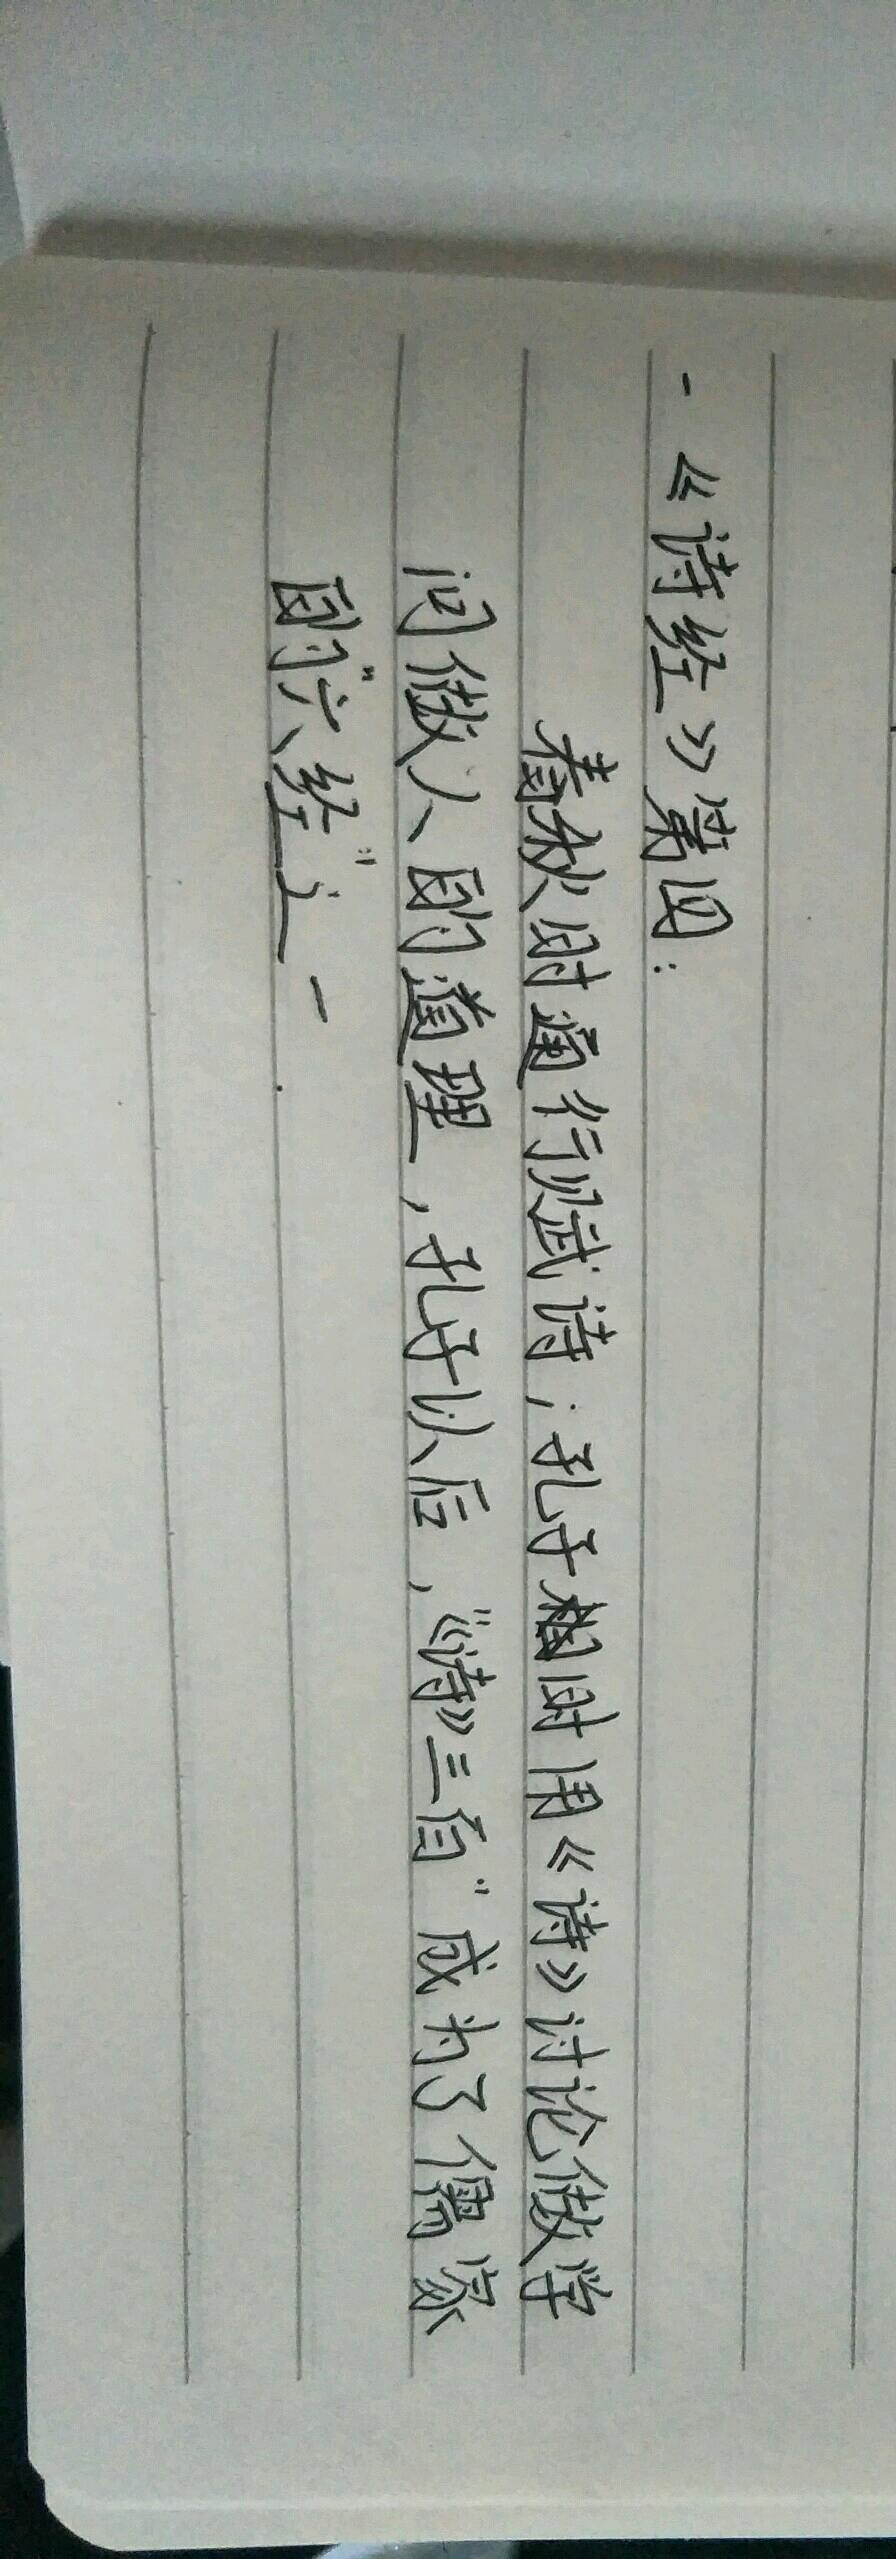 一《诗经》第四:
春秋时通行赋诗；孔子相时用《诗》讨论做学
问做人的道理，孔子以后，“《诗》三百”成为了儒家
的“六经”之一.